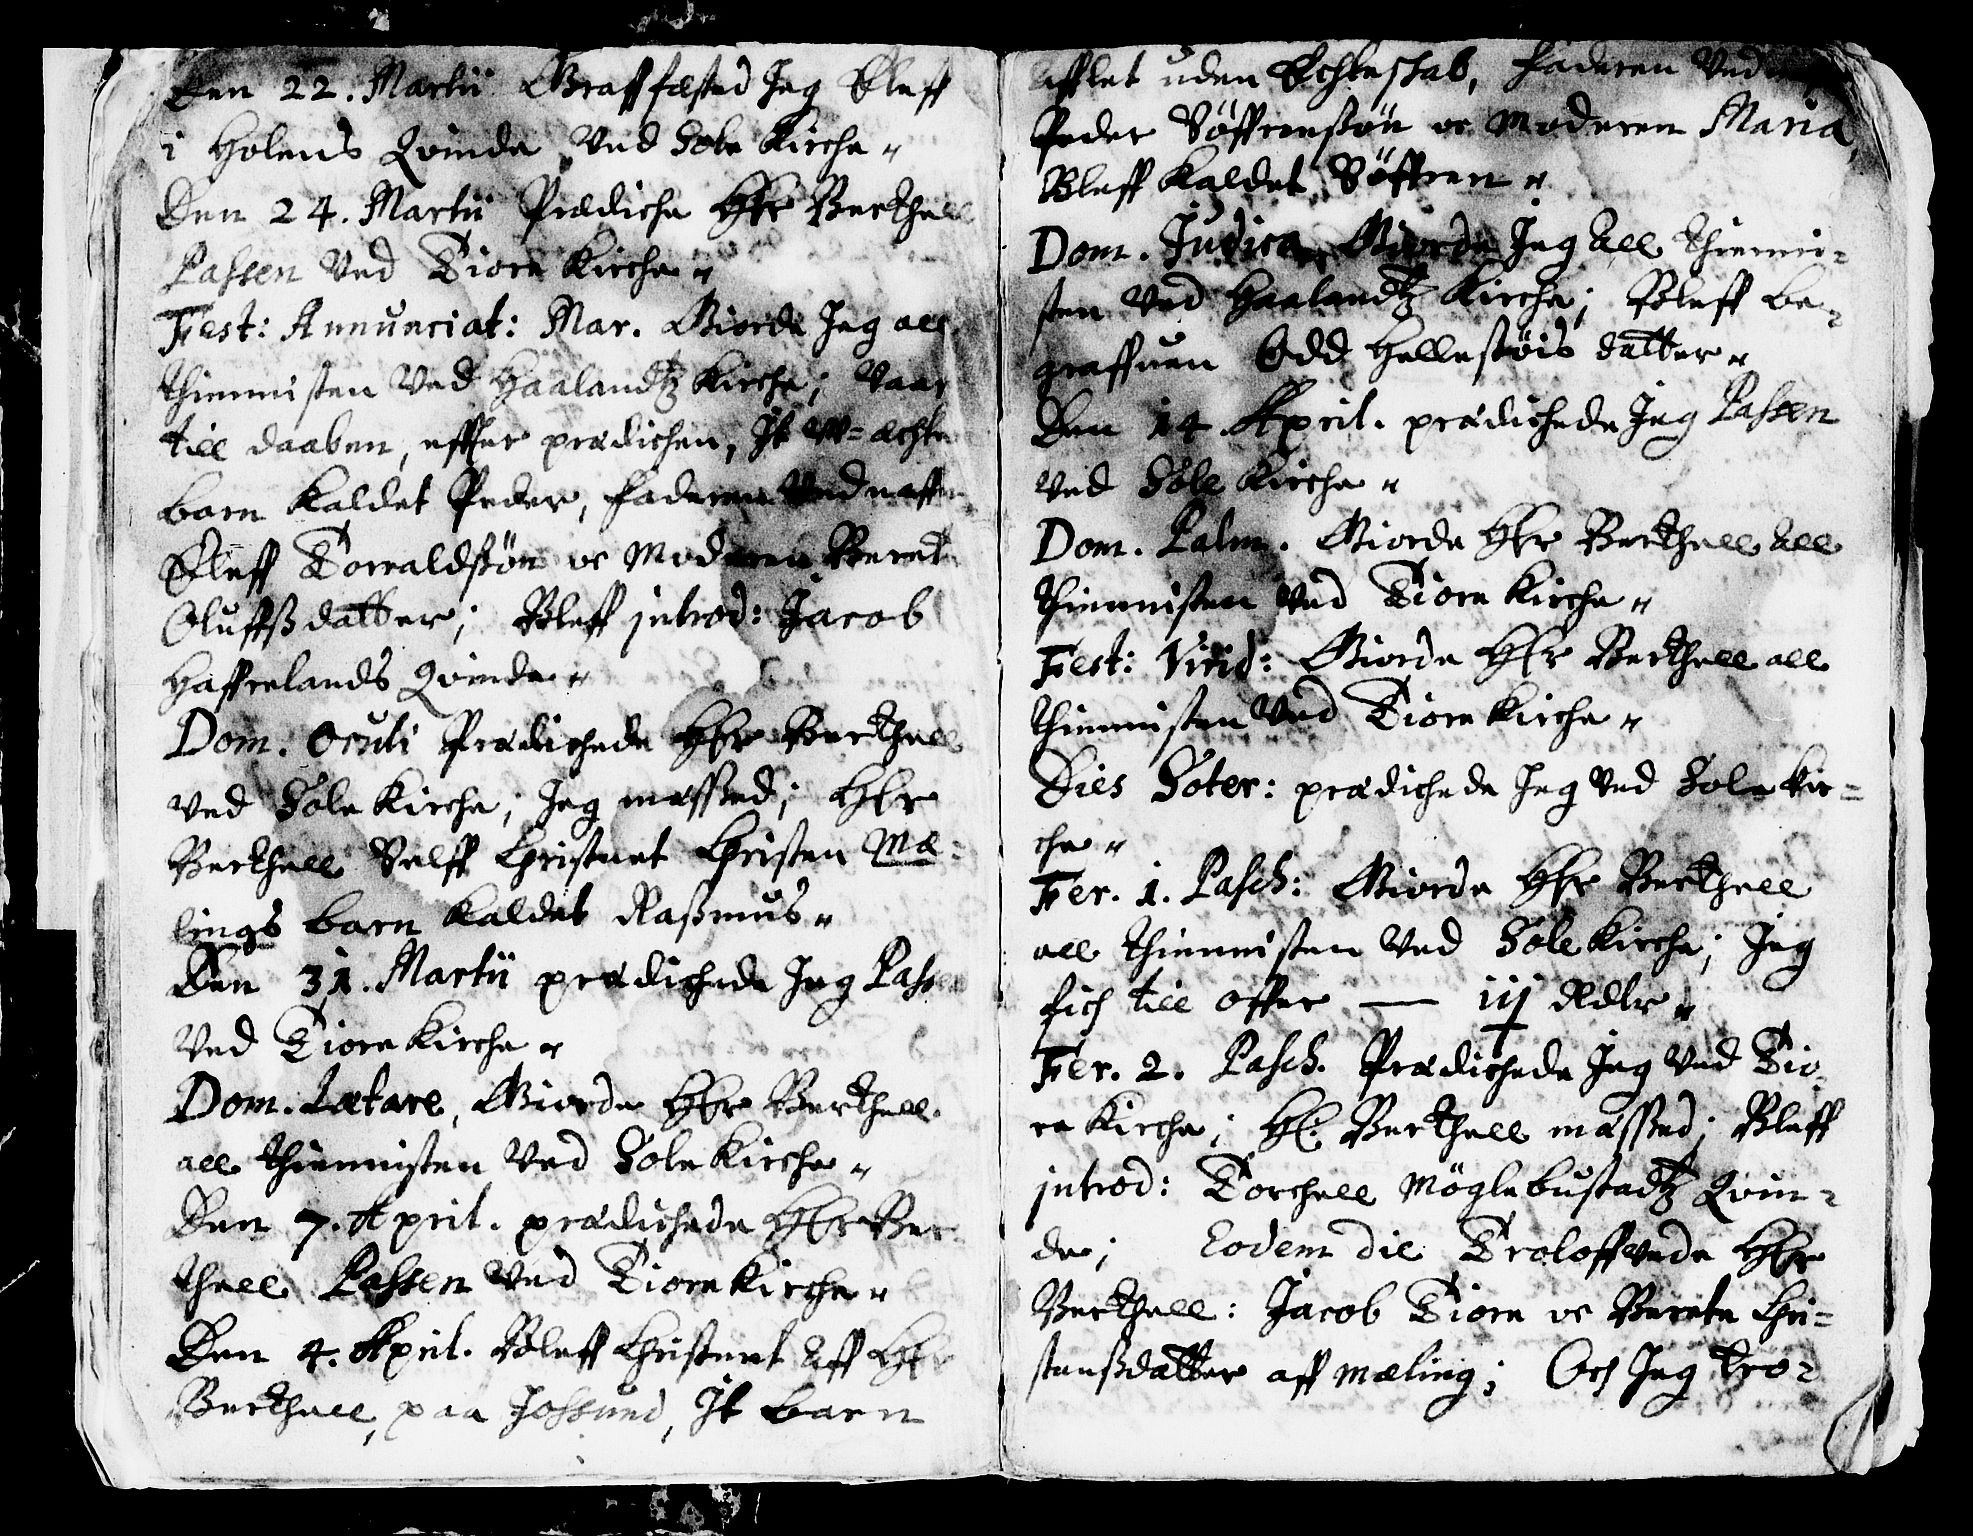 Den 22. Martii Graffæsted Jeg Eleff
i Holens Qvinde Ved Sole Kirche
Den 24. Martii Prædiche Hr Berthell
Passen Ved Tiora Kirche
Fest: Annunciat: Mar. Giorde Jeg all
thiennisten Ved Haalandtz Kirche; Vaar
till daaben, effter prædichen, It W=æchte
barn kaldet Peder, faderen Ved naffn
Eleff Torvaldsøn oc Moderen Beret
Oluffsdatter; Bleff introd: Jacob
Haffrelands Qvinde
Dom. Oculi Prædichede Hr Berthell
ved Sole Kirche; Jeg messed; Hr
Berthell Selff Christnet Christen Mæ-
lings barn kaldet Rasmus
Den 31. Martii prædichede Jeg Passen
Ved Tiora Kirche
Dom. Lætare, Giorde Hr Berthell
all thiennisten Ved Sole Kirche
Den 7. April. prædichede Hr Ber
thell Passen Ved Tiora Kirche
Den 4. April. Bleff Christnet aff Hr
Berthell, paa Jossund, It barn
afflet uden Echteskab, faderen Ved
Peder Söffrensøn oc Moderen Maria,
Bleff kaldet Söffren
Dom. Judica, Giorde Jeg all thienni-
sten Ved Haalandtz Kirche; Bleff be-
graffuen Odd Hellestøis datter
Den 14 April. prædichede Jeg Passen
ved Sole Kirche
Dom. Palm. Giorde Hr Berthell all
thiennisten Ved Tiora Kirche
Fest: Virid: Giorde Hr Berthell all
thiennisten Ved Tiora Kirche
Dies Soter: prædichede Jeg Ved Sole Kir=
che
Fer. 1. Pasch: Giorde Hr Berthell
all thiennisten Ved Sole Kirche; Jeg
fich till offer — iij Rdlr
Fer. 2. Pasch. Prædichede Jeg Ved Tio-
ra Kirche; H. Berthell messed; Bleff
introd: Torchell Möglebustadtz Qvin-
de; Eodem die Troloffvede Hr
Berthell: Jacob Tiora oc Berete Chri-
stensdatter aff Mæling; Och Jeg tro-